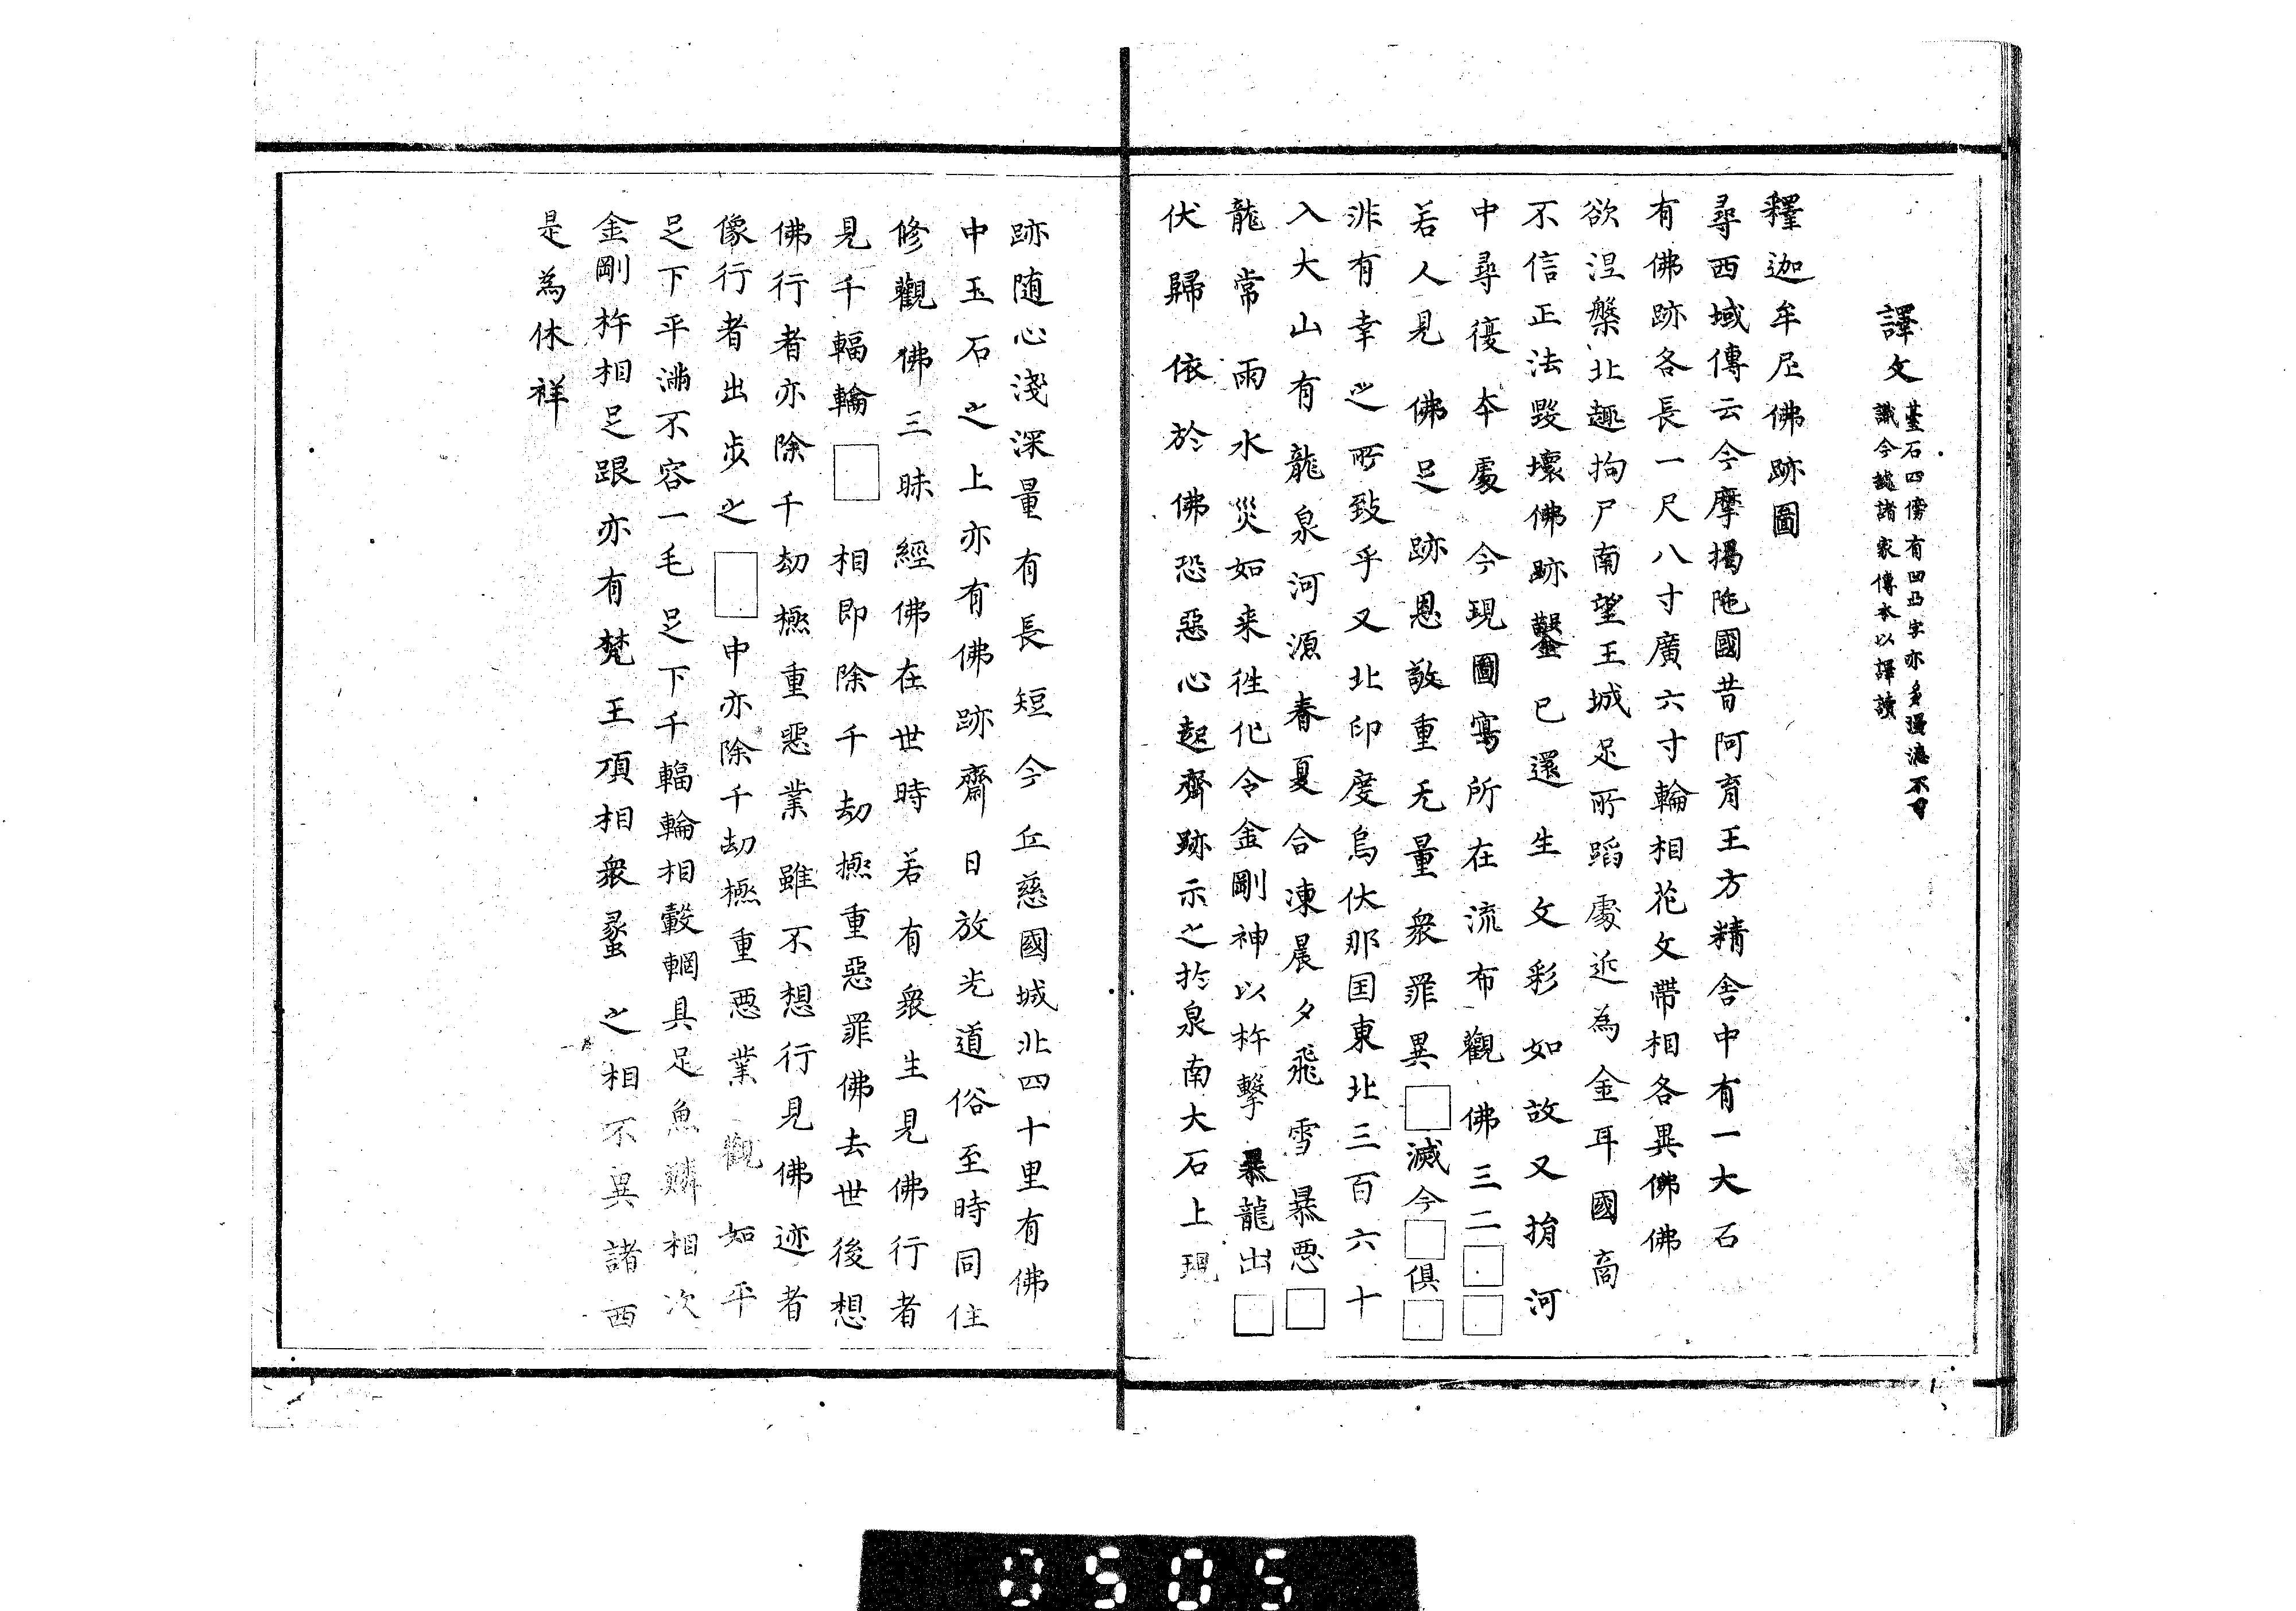 譯文 臺石四傍有凹凸字亦多漫漶不可
識今據諸家傳本以譯讀
釋迦牟尼佛跡圖
尋西域傳云今摩揭陁國昔阿育王方精舍中有一大石
有佛跡各長一尺八寸廣六寸輪相花文帶相各異佛佛
欲涅槃北趣拘尸南望王城足所蹈處近為金耳國商
不信正法毀壞佛跡鑿已還生文彩如故又捐河
中尋復本處今現圖寫所在流布觀佛三二□□
若人見佛足跡恩敬重无量衆罪異□滅今□俱□
非有幸之所致乎又北印度烏仗那国東北三百六十
入大山有龍泉河源春夏合凍晨夕飛雪暴惡□
龍常雨水災如来往化令金剛神以杵擊暴龍出□
伏歸依於佛恐惡心起齊跡示之於泉南大石上現
跡随心淺深量有長短今丘慈國城北四十里有佛
中玉石之上亦有佛跡齋日放光道俗至時同住
修觀佛三昧經佛在世時若有衆生見佛行者
見千輻輪□相即除千劫極重惡罪佛去世後想
佛行者亦除千劫極重惡業雖不想行見佛迹者
像行者出歩之□中亦除千劫極重悪業觀如平
足下平滿不容一毛足下千輻輪相轂輞具足魚鱗相次
金剛杵相足跟亦有梵王頂相衆蠡之相不異諸西
是為休祥
0505